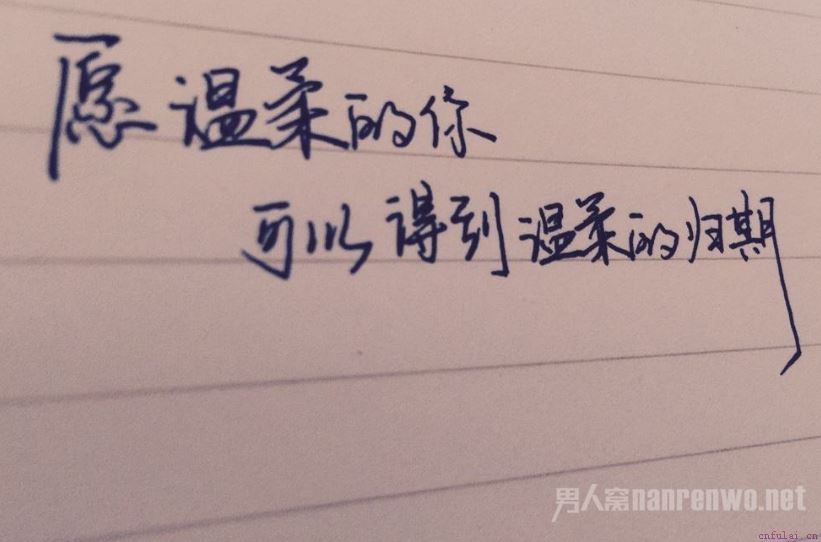 愿温柔的你
可以得到温柔的归期
男人窝nanrenwo.net
cnfulaj.cn